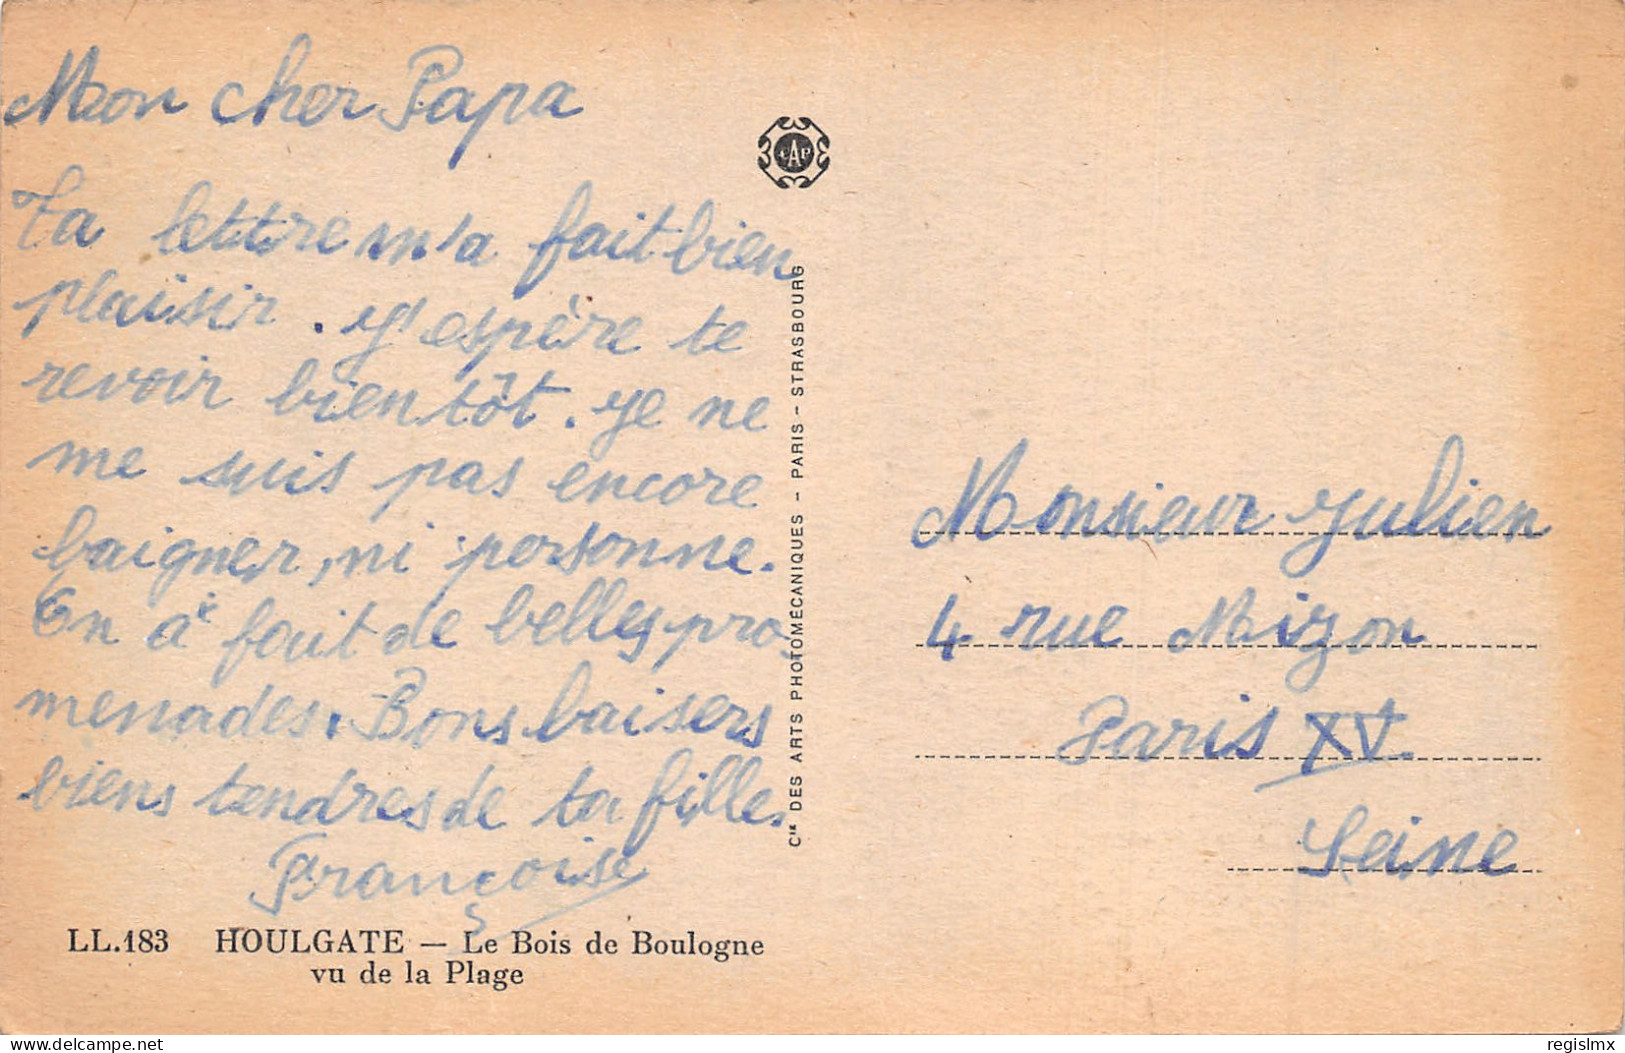 Mon cher Papa
Ta lettre m'a fait bien
plaisir. J'espère te
revoir bientôt. Je ne
me suis pas encore
baigner, ni personne.
On a fait de belles pro-
menades. Bons baisers
biens tendres de ta fille.
Françoise
LL.183 HOULGATE — Le Bois de Boulogne
vu de la Plage
CAP
Cie DES ARTS PHOTOMÉCANIQUES - PARIS - STRASBOURG
Monsieur Julien
4 rue Mizon
Paris XV
Seine
delcampe.net
regislmx